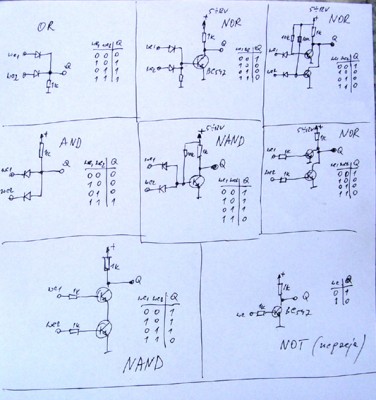 OR
we1
we2
1k
Q
we1 we2 Q
0 0 0
1 0 1
0 1 1
1 1 1
5÷12V
NOR
1k
Q
we1
we2
BC547
1k
we1 we2 Q
0 0 1
1 0 0
0 1 0
1 1 0
5÷12V
NOR
1k
Q
we1
we2
we1 we2 Q
0 0 1
1 0 0
0 1 0
1 1 0
AND
1k
Q
we1
we2
we1 we2 Q
0 0 0
1 0 0
0 1 0
1 1 1
5÷12V
NAND
1k
Q
we1
we2
we1 we2 Q
0 0 1
1 0 1
0 1 1
1 1 0
5÷12V
NOR
1k
Q
we1 1k
we2 1k
we1 we2 Q
0 0 1
1 0 0
0 1 0
1 1 0
1k
Q
we1 1k
we2 1k
we1 we2 Q
0 0 1
1 0 1
0 1 1
1 1 0
NAND
1k
Q
we 1k
BC547
we Q
0 1
1 0
NOT (negacja)